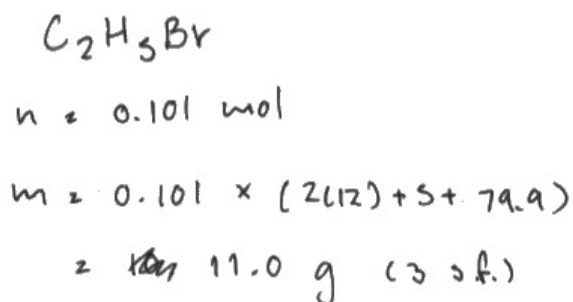 C₂H₅Br
n = 0.101 mol
m = 0.101 × (2(12) + 5 + 79.9)
= 11.0 g (3 s.f.)